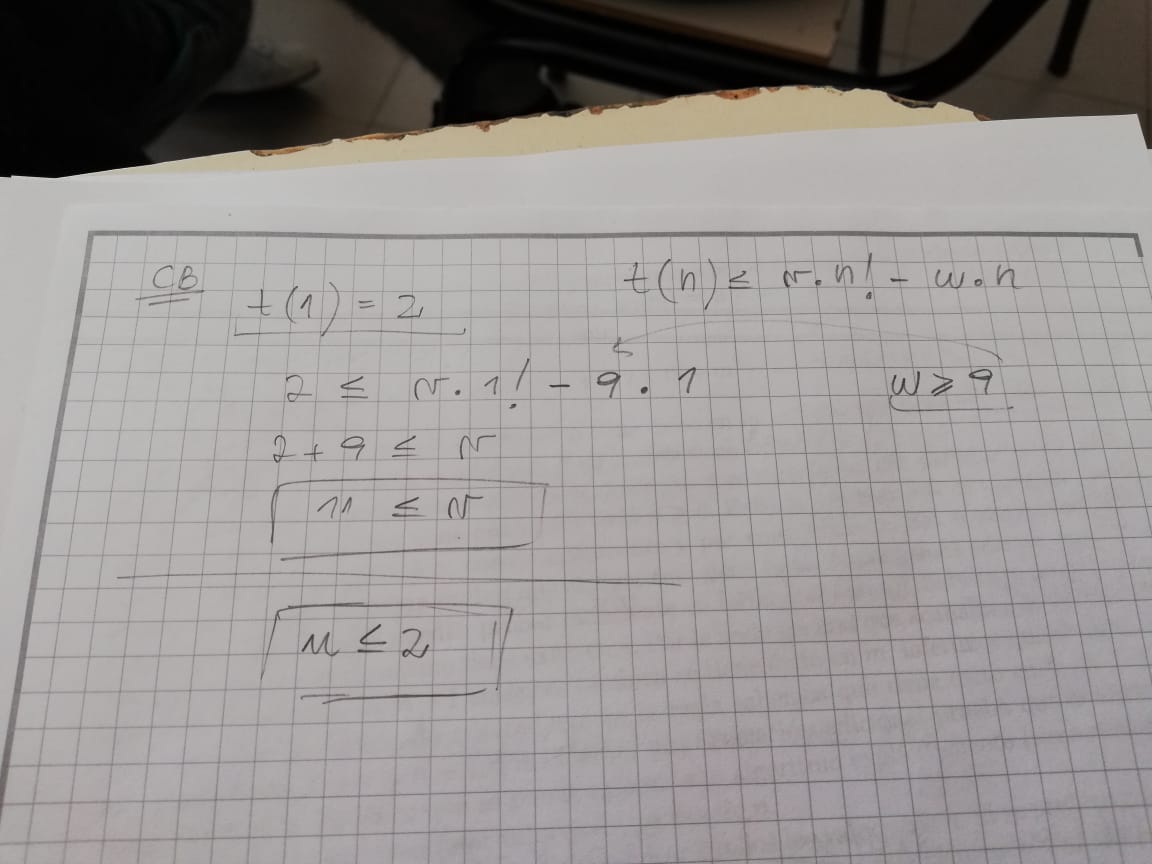 CB
t(1) = 2
t(n) ≤ v.n! - w.n
2 ≤ v.1! - 9.1
w ≥ 9
2+9 ≤ v
11 ≤ v
u ≤ 2